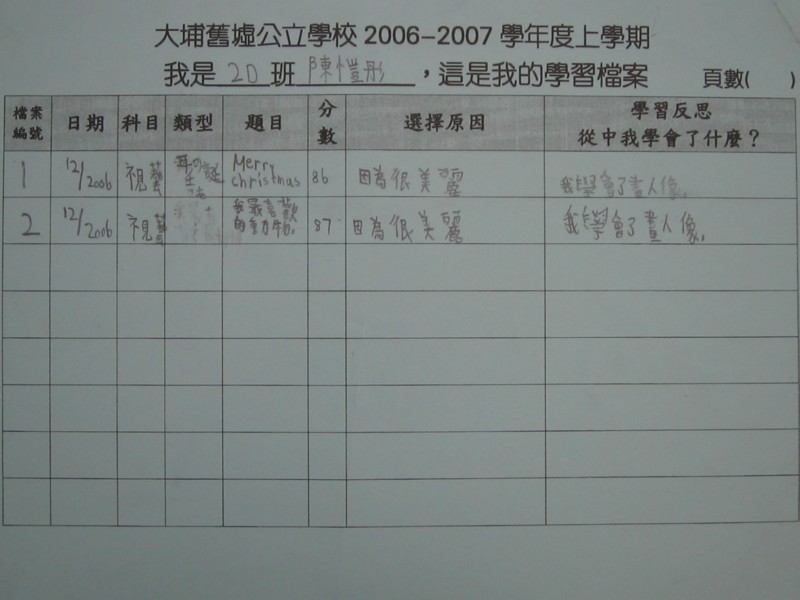 大埔舊墟公立學校 2006-2007 學年度上學期
我是 2D 班 陳愷彤 ，這是我的學習檔案 頁數( )
檔案編號 日期 科目 類型 題目 分數 選擇原因 學習反思 從中我學會了什麼？
1 12/2006 視藝 Merry christmas 86 因為很美麗 我學會了畫人像。
2 12/2006 視藝 我最喜歡的動物。 87 因為很美麗 我學會了畫人像。